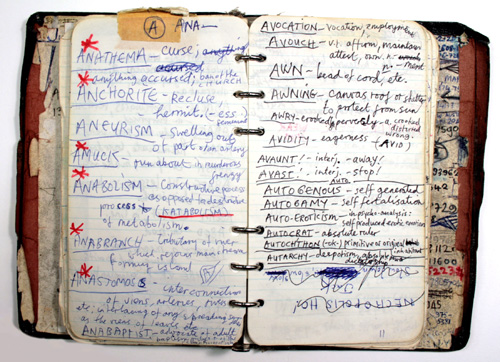 A ANA—
ANATHEMA — curse; anything
accursed
anything accursed; ban of the
CHURCH
ANCHORITE — Recluse
hermit. (-ess
feminine
ANEURISM — Swelling out
of part of an artery
AMUCK — run about in murderous
frenzy
ANABOLISM — Constructive process
as opposed to destructive
process (KATABOLISM)
of metabolism.
ANABRANCH — tributary of river
forming island
ANASTOMOSIS — interconnection
of veins, arteries, rivers
etc; interlacing of any spreading
as the veins of leaves etc
ANABAPTIST — advocate of adult
AVOCATION — vocation, employment
AVOUCH — v.t. affirm, maintain
attest, own. n.
n. — ment
AWN — beard of corn, etc.
AWNING — canvas roof or shelter
to protect from sun
AWRY — crooked, perversely — a crooked
distorted
wrong.
AVIDITY — eagerness (AVID)
AVAUNT! — interj. — away!
AVAST! — interj. — stop!
AUTO
AUTOGENOUS — self generated
AUTOGAMY — self fertilisation
AUTO-EROTICISM — in psycho-analysis:
self produced erotic emotion
AUTOCRAT — absolute ruler
AUTOCHTHON (-ok-) primitive or original
inhabitant
AUTARCHY — despotism, absolute
NECROPOLIS
11